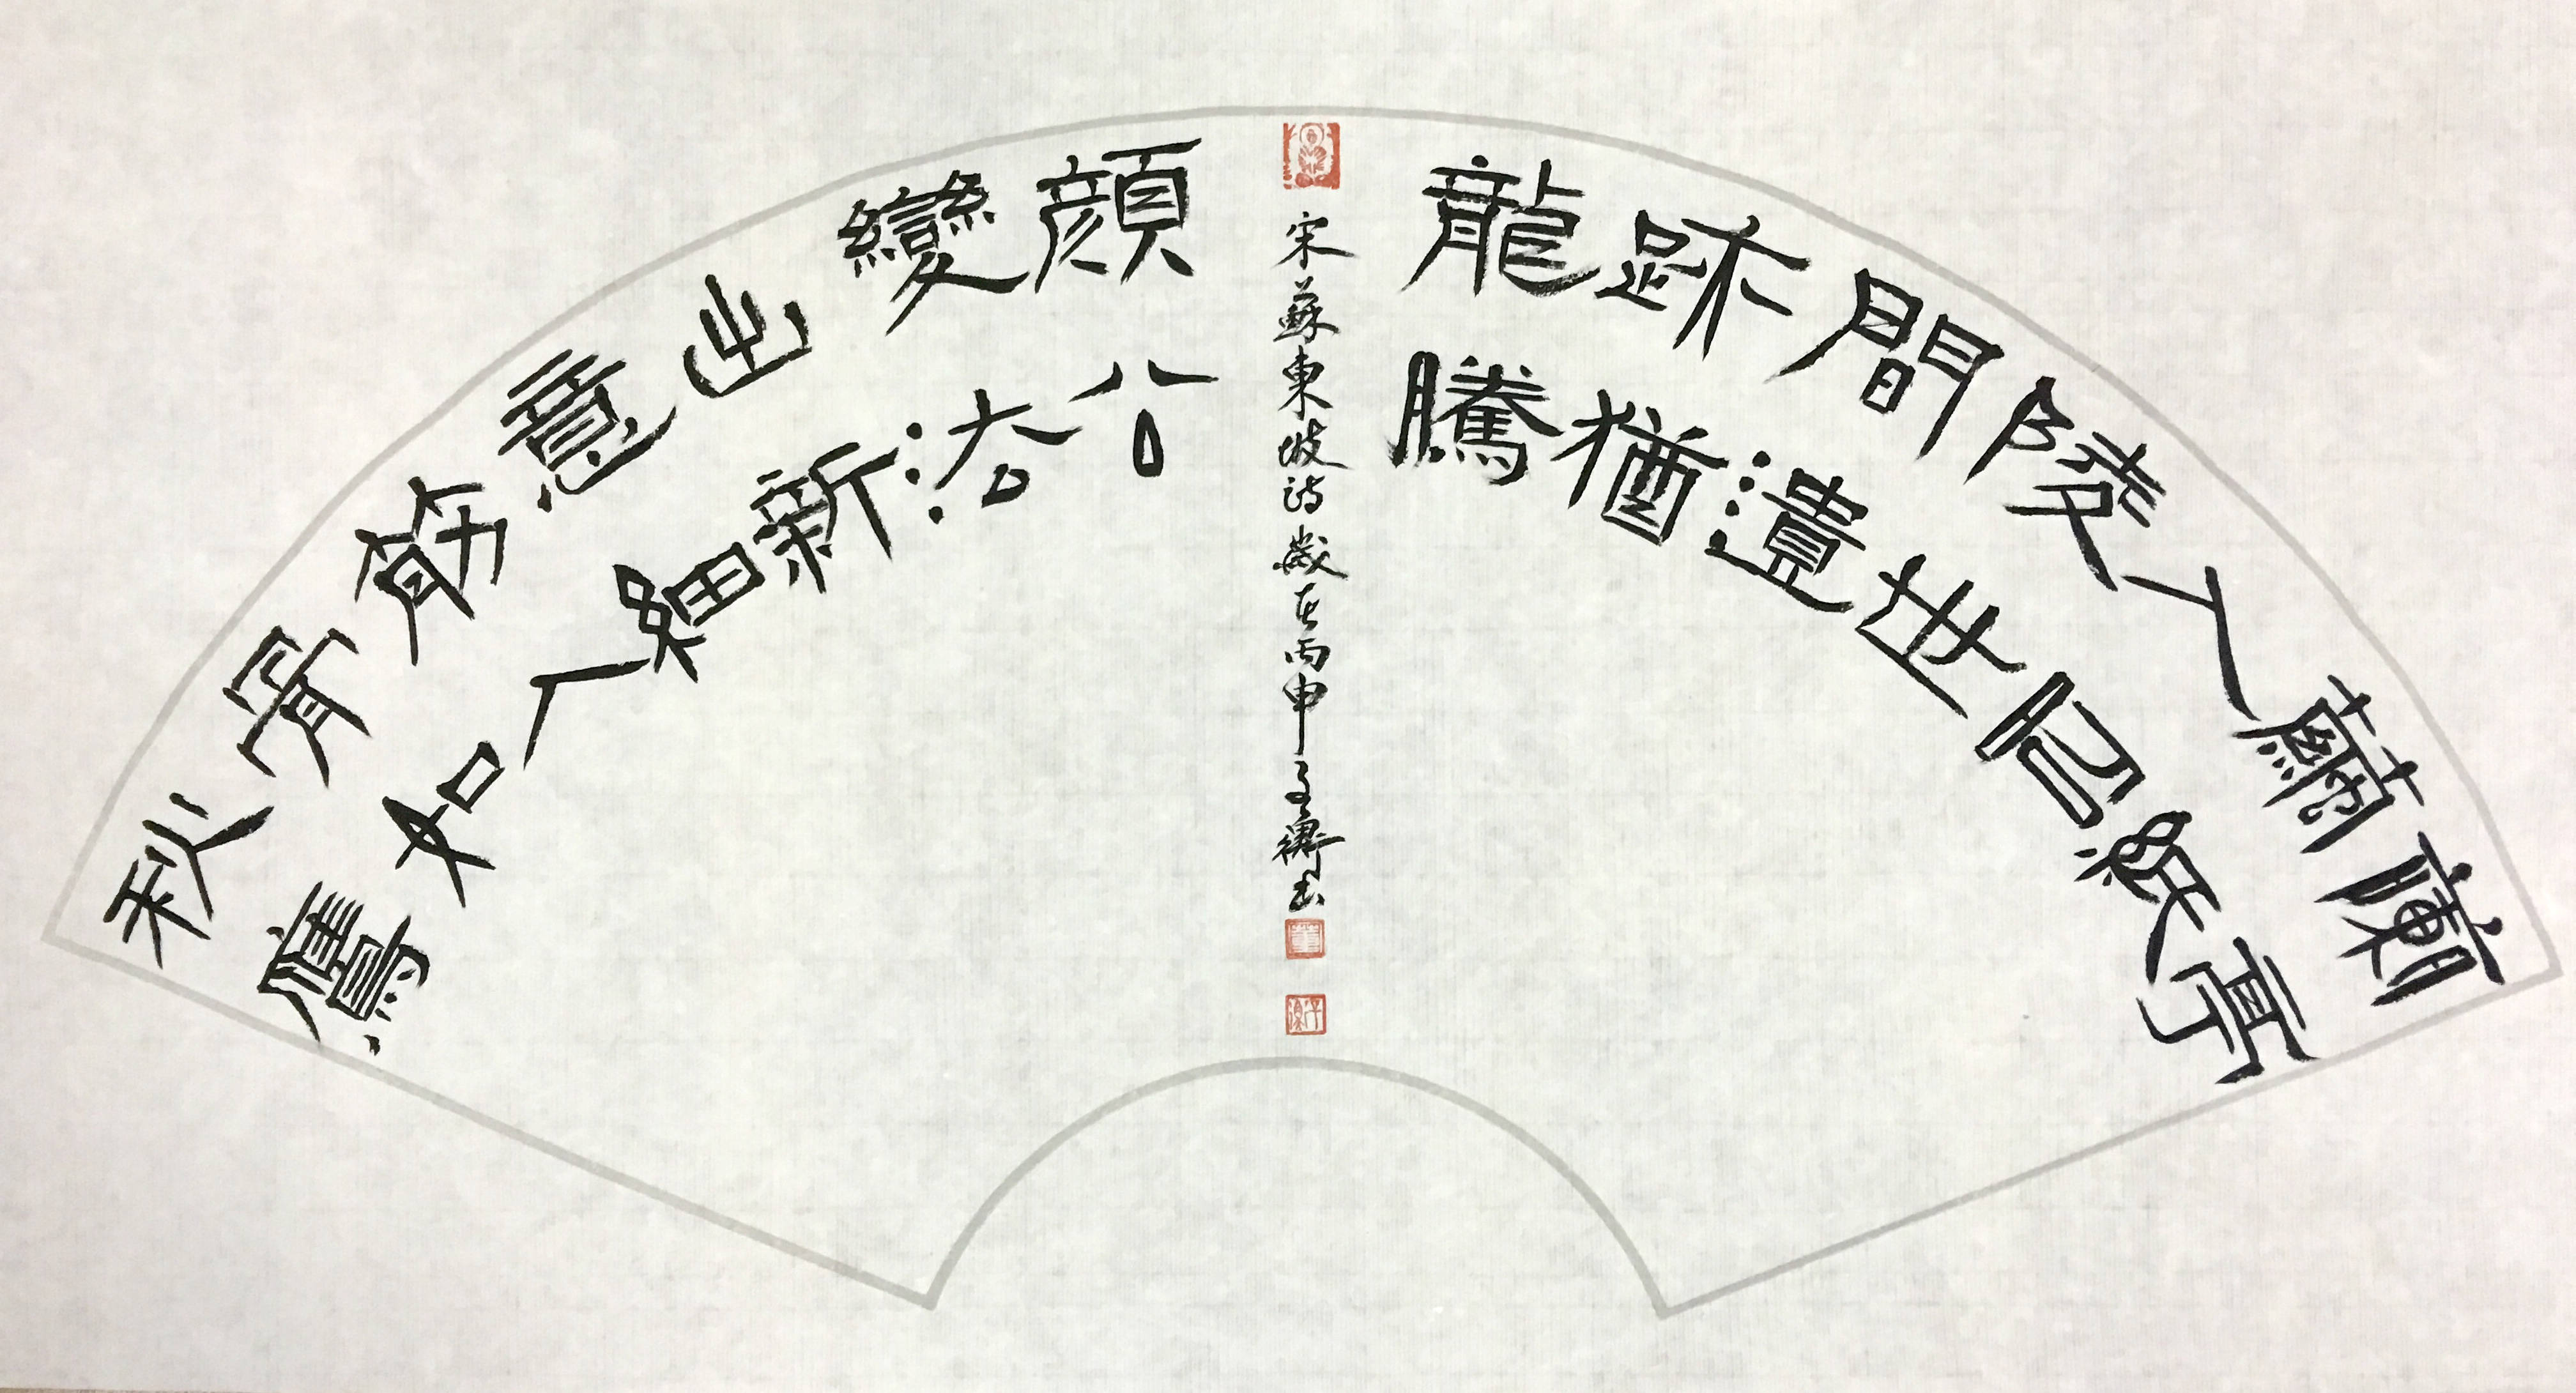 蘭亭
繭紙
入昭
陵世
間遺
跡猶
龍騰
宋蘇東坡詩歲在丙申子衡書
顏公
變法
出新
意細
筋入
骨如
秋鷹